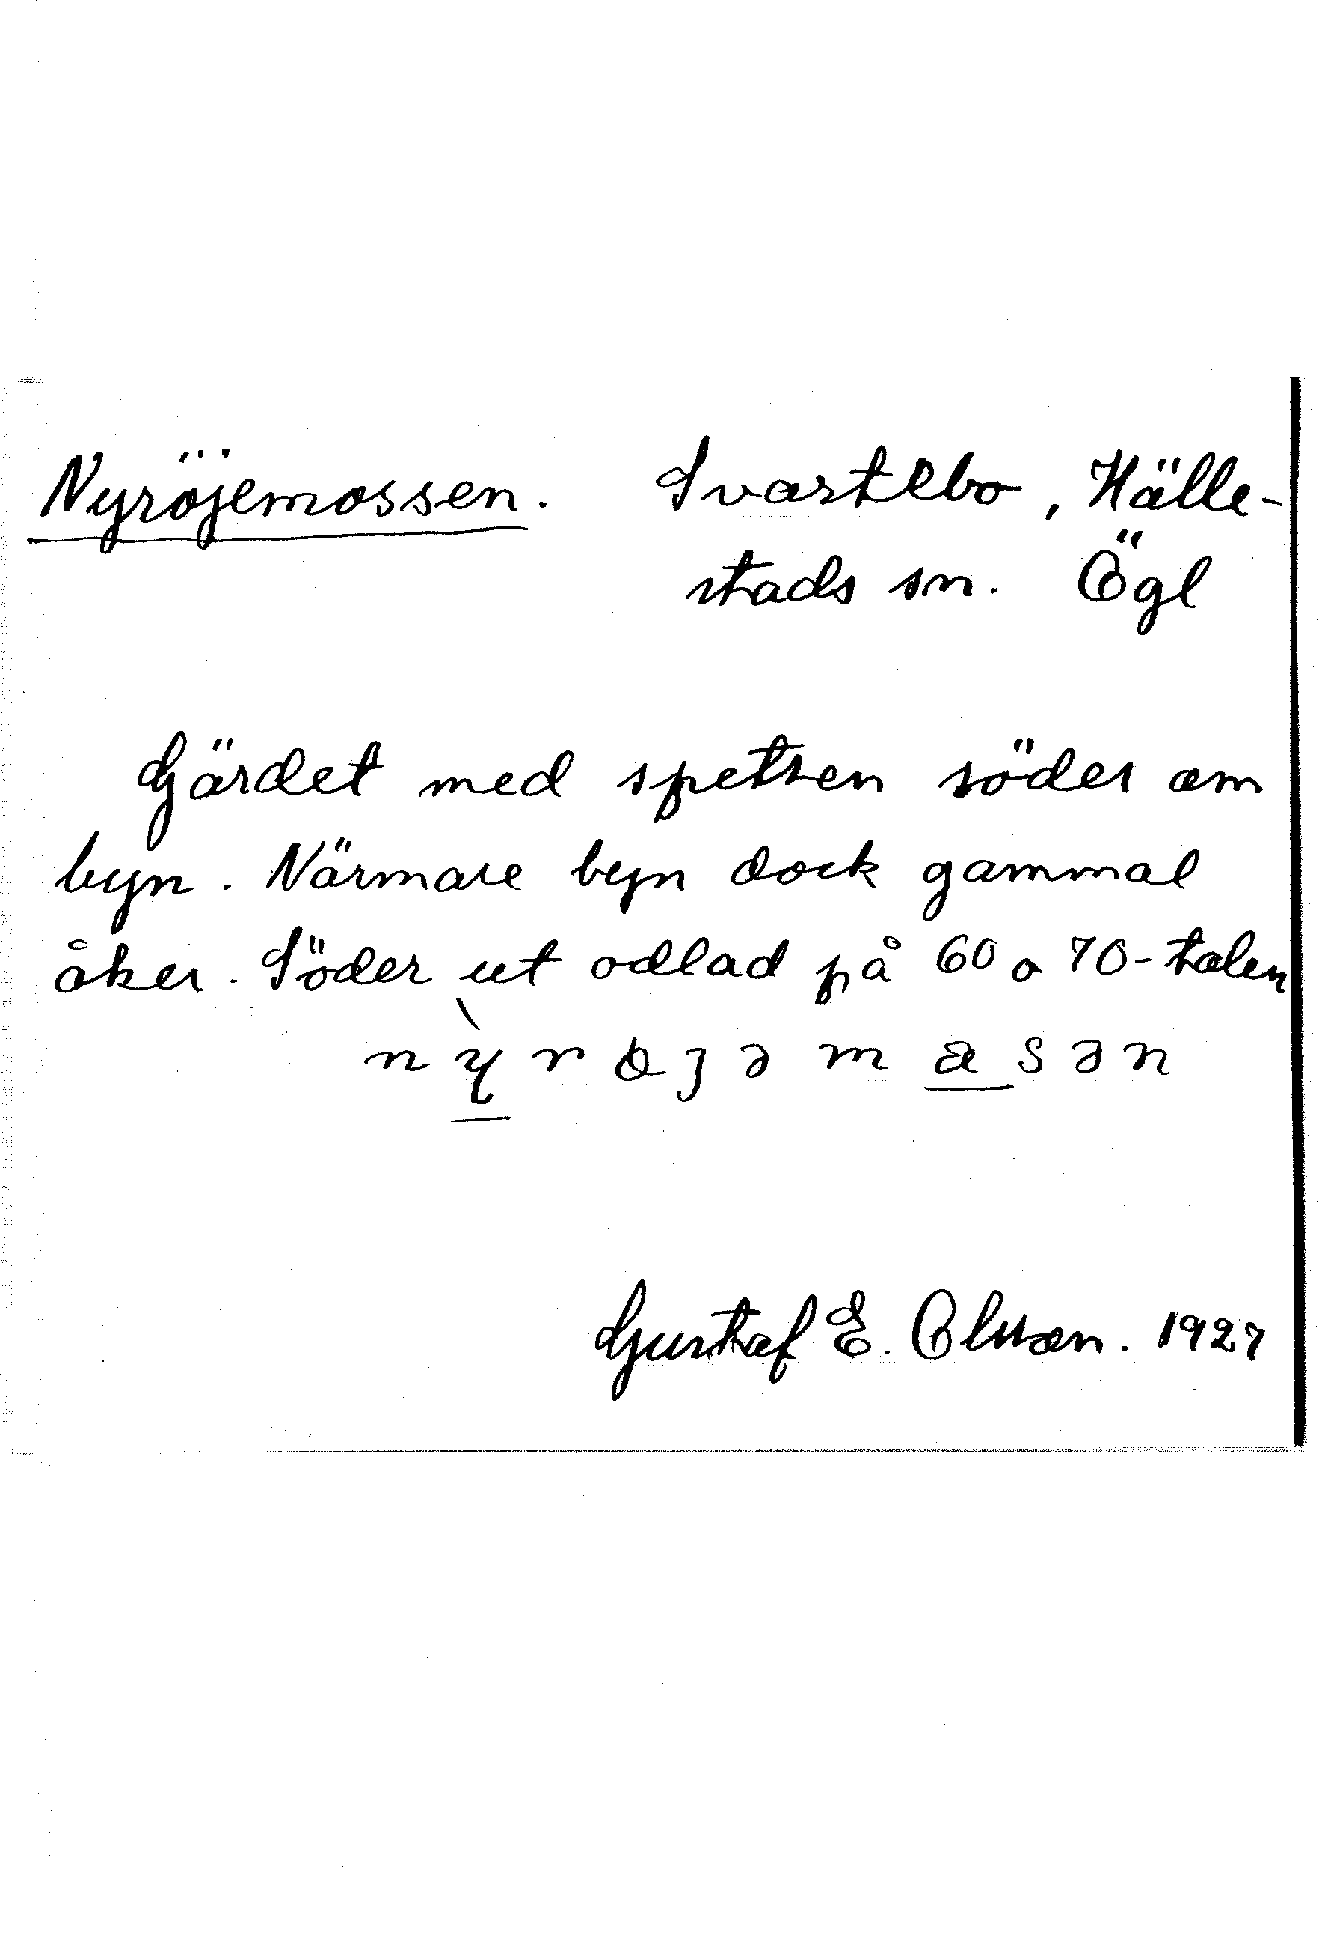 Nyröjemossen. Svartebo, Hälle-
stads sn. Ögl
Gärdet med spetsen söder om
byn. Närmare byn dock gammal
åker. Söder ut odlad på 60 o 70-talen
Gustaf E. Olsson. 1927